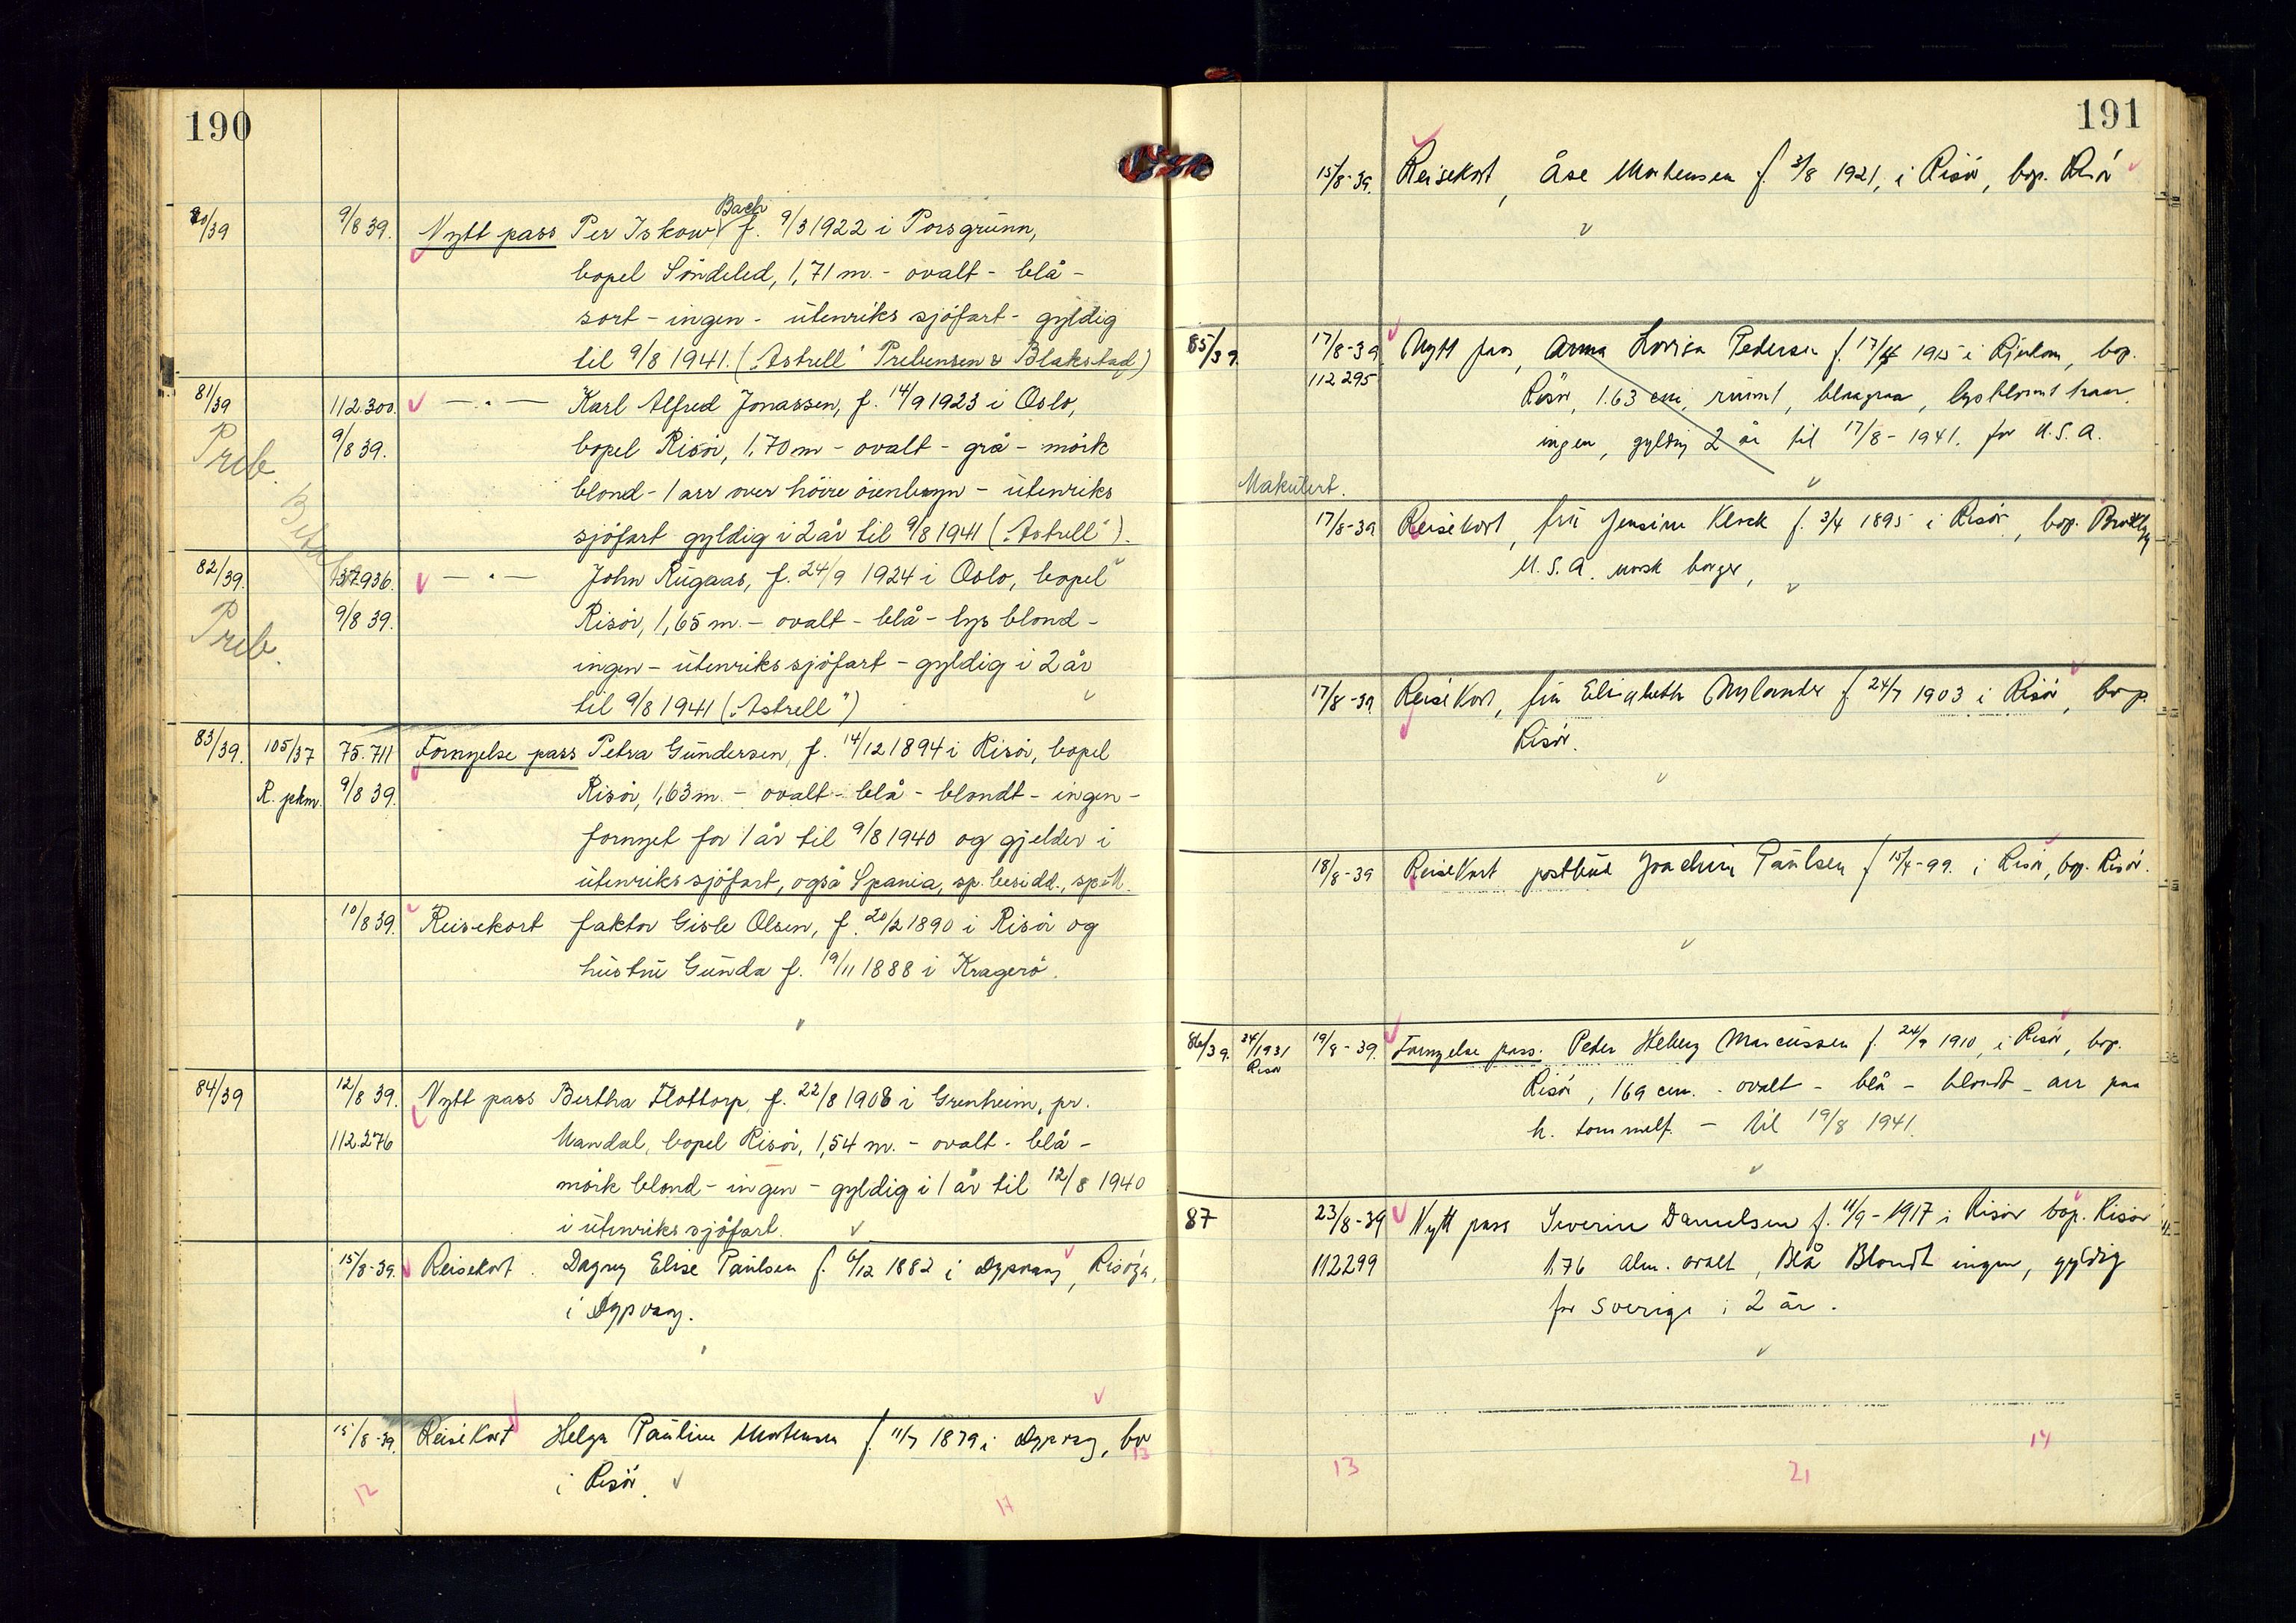 190
80/39 9/8 39. Nytt pass Per Iskow Bach f. 9/3 1922 i Porsgrunn,
bopel Søndeled, 1,71 m. - ovalt - blå -
sort - ingen - utenriks sjøfart - gyldig
til 9/8 1941. („Astrell" Prebensen & Blakstad)
81/39 112.300. — " — Karl Alfred Jonassen, f. 14/9 1923 i Oslo,
Preb. 9/8 39. bopel Risør, 1,70 m - ovalt - grå - mørk
blond - 1 arr over høire øienbryn - utenriks
sjøfart gyldig i 2 år til 9/8 1941 („Astrell").
82/39. 137936. — " — John Rugaas, f. 24/9 1924 i Oslo, bopel
Preb. 9/8 39. Risør, 1,65 m. - ovalt - blå - lys blond -
ingen - utenriks sjøfart - gyldig i 2 år
til 9/8 1941 („Astrell")
83/39. 105/37 75.711 Fornyelse pass Petra Gundersen, f. 14/12 1894 i Risør, bopel
R. pkm. 9/8 39. Risør, 1,63 m. - ovalt - blå - blondt - ingen -
fornyet for 1 år til 9/8 1940 og gjelder i
utenriks sjøfart, også Spania, sp. besidd.,
10/8 39. Reisekort faktor Gisle Olsen, f. 20/2 1890 i Risør og
hustru Gunda f. 19/11 1888 i Kragerø.
84/39 12/8 39. Nytt pass Bertha Flottorp, f. 22/8 1908 i Grenheim, pr.
112.276 Mandal, bopel Risør, 1,54 m. - ovalt - blå -
mørk blond - ingen - gyldig i 1 år til 12/8 1940
i utenriks sjøfart.
15/8-39. Reisekort. Dagny Elise Paulsen f. 6/12 1882 i Dypvaag, Risøya,
i Dypvaag.
15/8-39. Reisekort Helga Pauline Mortensen f. 11/7 1879 i Dypvag, bor
13
i Risør.
12 17
191
15/8-39. Reisekort, Åse Mortensen f. 3/8 1921, i Risør, bop. Risør
85/39. 17/8-39 Nytt pass, Anna Lovisa Pedersen f. 17/4 1915 i Rjukan, bop.
112295 Risør, 1.63 cm, rundt, blaagraa, lysblont haar,
ingen, gyldig 2 år til 17/8-1941. for U.S.A.
Makulert.
17/8-39 Reisekort, fru Jensine Klock f. 3/4 1895 i Risør, bop. Brooklyn
U.S.A. norsk borger,
17/8-39 Reisekort, fru Elisabeth Nylander f. 24/7 1903 i Risør, bop.
Risør.
18/8-39 Reisekort postbud Joachim Paulsen f. 15/4-99. i Risør, bop. Risør.
86/39. 34/1931 19/8-39. Fornyelse pass. Peder Heberg Marcussen f. 24/9 1910, i Risør, bop.
Risør Risør, 169 cm. - ovalt - blå - blondt - arr paa
h. tommelf. - til 19/8 1941.
87 23/8-39 Nytt pass Severin Danielsen f. 11/9-1917 i Risør bop. Risør
112299 1.76 alm. ovalt, Blå Blondt ingen, gyldig
for Sverige i 2 år.
14
13 21